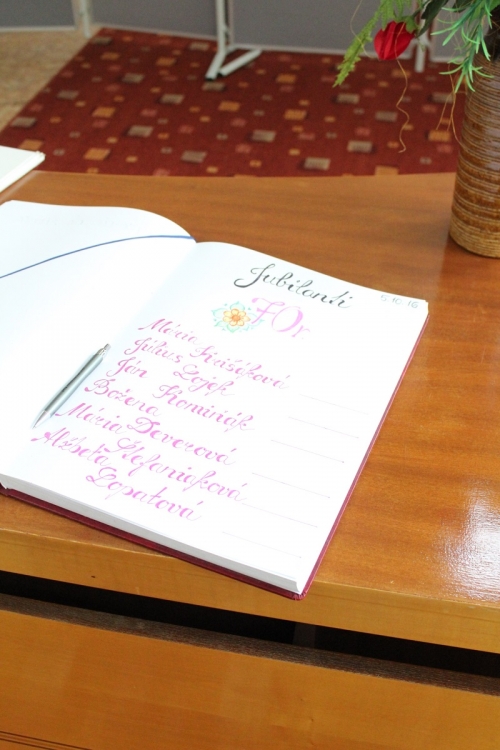 Jubilanti
5.10.16
70r
Mária
Július Gajdk
Ján Kominiák
Božena Deverová
Mária Štefaniaková
Alžbeta Lopatová